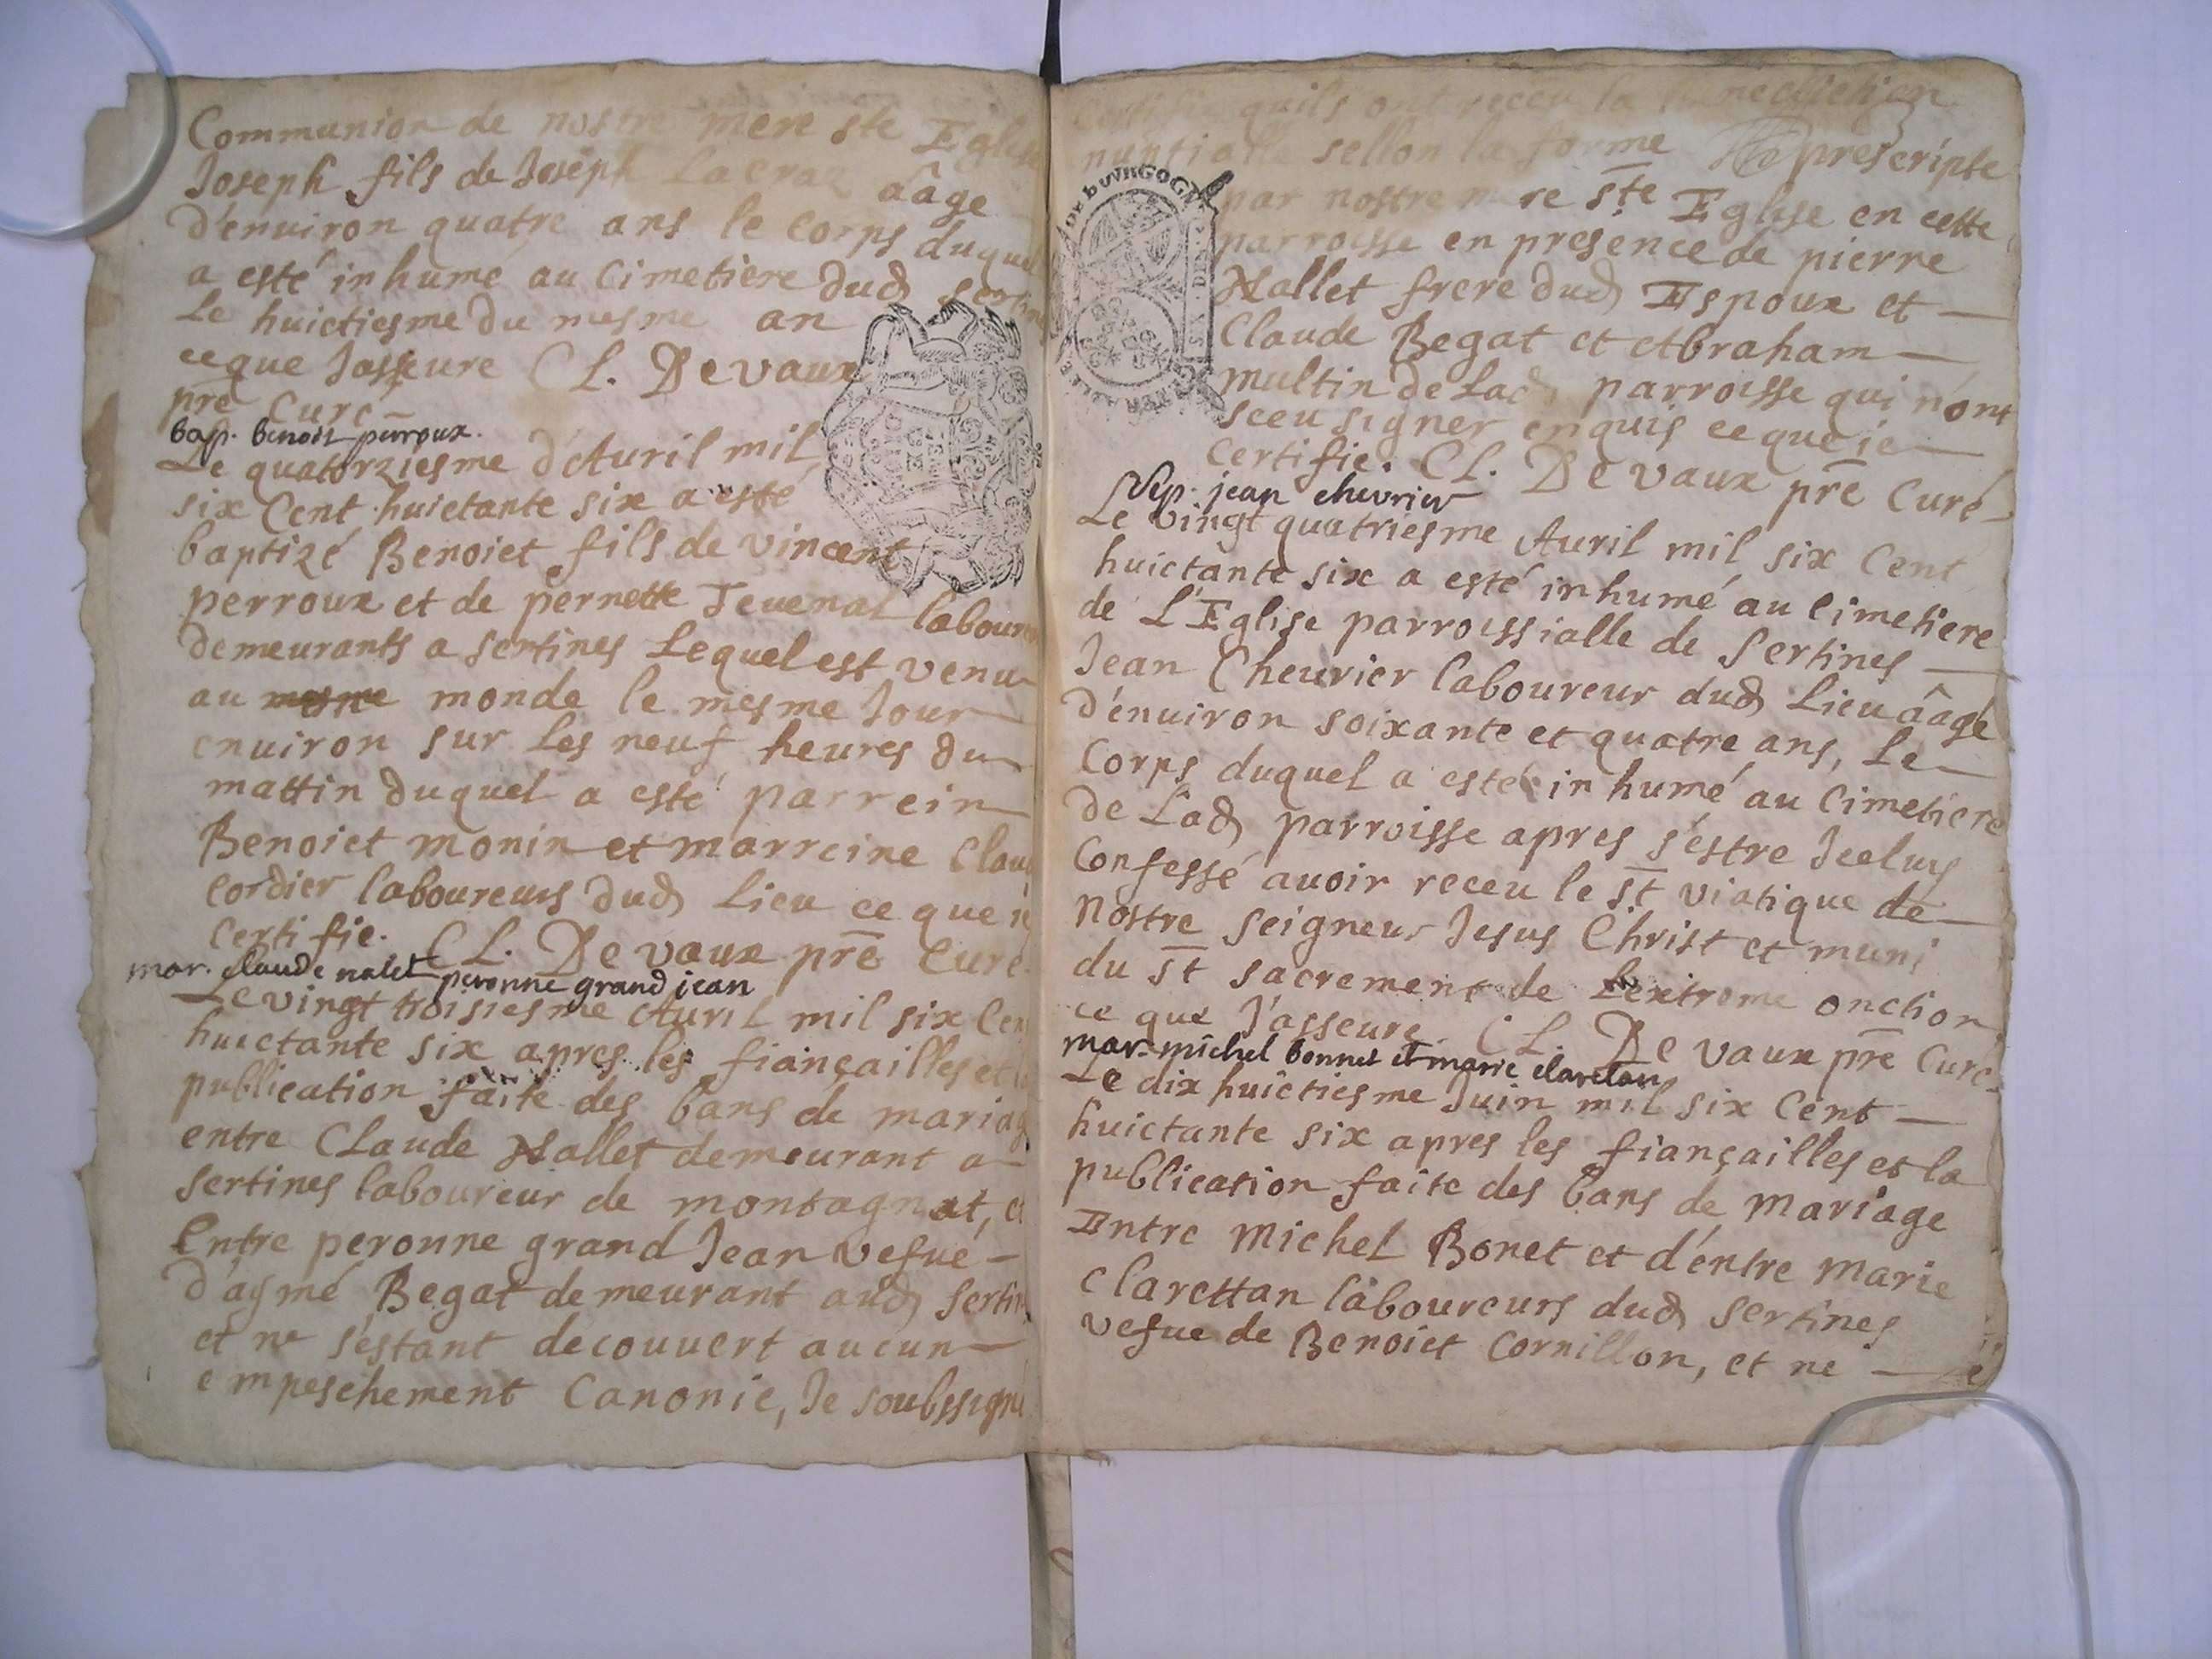 Communion de nostre mere ste Eglise
Joseph fils de Joseph Lacraz aâge
d'enuiron quatre ans le corps duquel
a esté inhumé au Cimetiere dud
Le huictiesme du mesme an
ceque Jasseure CL. Devaux
pre Curé
bap. benoit perroux.
Le quatorziesme d'Auril mil
six Cent huictante six a esté
baptizé Benoict fils de vincent
perroux et de pernette Teuenat
demeurants a sertines Lequel est venu
au mesme monde le mesme Jour
enuiron sur les neuf heures du
mattin duquel a esté parrein
Benoict monin et marreine
Cordier laboureurs dud Lieu ce que
Certifie. CL. Devaux pre Curé
mar. claude nalet peronne grand jean
Le vingt troisiesme Auril mil six
huictante six apres les fiançailles et
publication faite des bans de
entre Claude Nallet demeurant a
sertines laboureur de montagnat,
Entre peronne grand Jean vefue
d'aymé Begat demeurant aud
et ne s'estant decouuert aucun
empeschement Canonic, Je soubssigné
quils ont receu la
nuptialle sellon la forme prescripte
par nostre mere ste Eglise en cette
parroisse en presence de pierre
Nallet frere dud Espoux et
Claude Begat et Abraham
multin de Lad parroisse qui n'ont
sceu signer enquis ce que ie
Certifie. CL. Devaux pre Curé
DE BOVRGOGN
Sep. jean chevrier
Le vingt quatriesme Auril mil six Cent
huictante six a esté inhumé au Cimetiere
de L'Eglise parroissialle de Sertines
Jean Cheurier laboureur dud Lieu aâgé
d'enuiron soixante et quatre ans, Le
Corps duquel a esté inhumé au Cimetiere
de Lad parroisse apres s'estre Jceluy
Confessé auoir receu le st viatique de
Nostre seigneur Jesus Christ et muni
du st sacrement de Lextreme onction
ce que J'asseure CL. Devaux pre Curé
mar. michel bonnet et marie claretan
Le dix huictiesme Juin mil six Cent
huictante six apres les fiançailles et la
publication faite des bans de Mariage
Entre Michel Bonet et d'entre Marie
Clarettan laboureurs dud Sertines
vefue de Benoict Cornillon, et ne